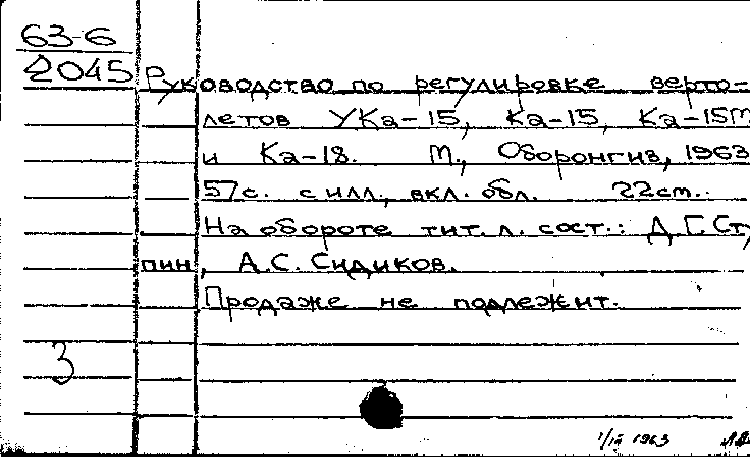 63-6
2045
Руководство по регулировке верто-
летов УКа-15, Ка-15, Ка-15М
и Ка-18. М., Оборонгиз, 1963
57с. с илл., вкл. обл. 22см.
На обороте тит. л. сост.: Д.Г. Сту
пин, А.С. Сидиков.
Продаже не подлежит.
3
1963